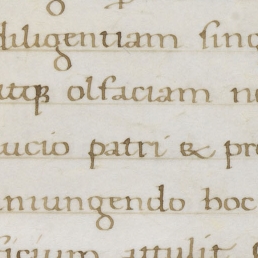 diligentiam sinc
atq; olfaciam n
lucio patri & pr
iniungendo hoc
ficium attulit